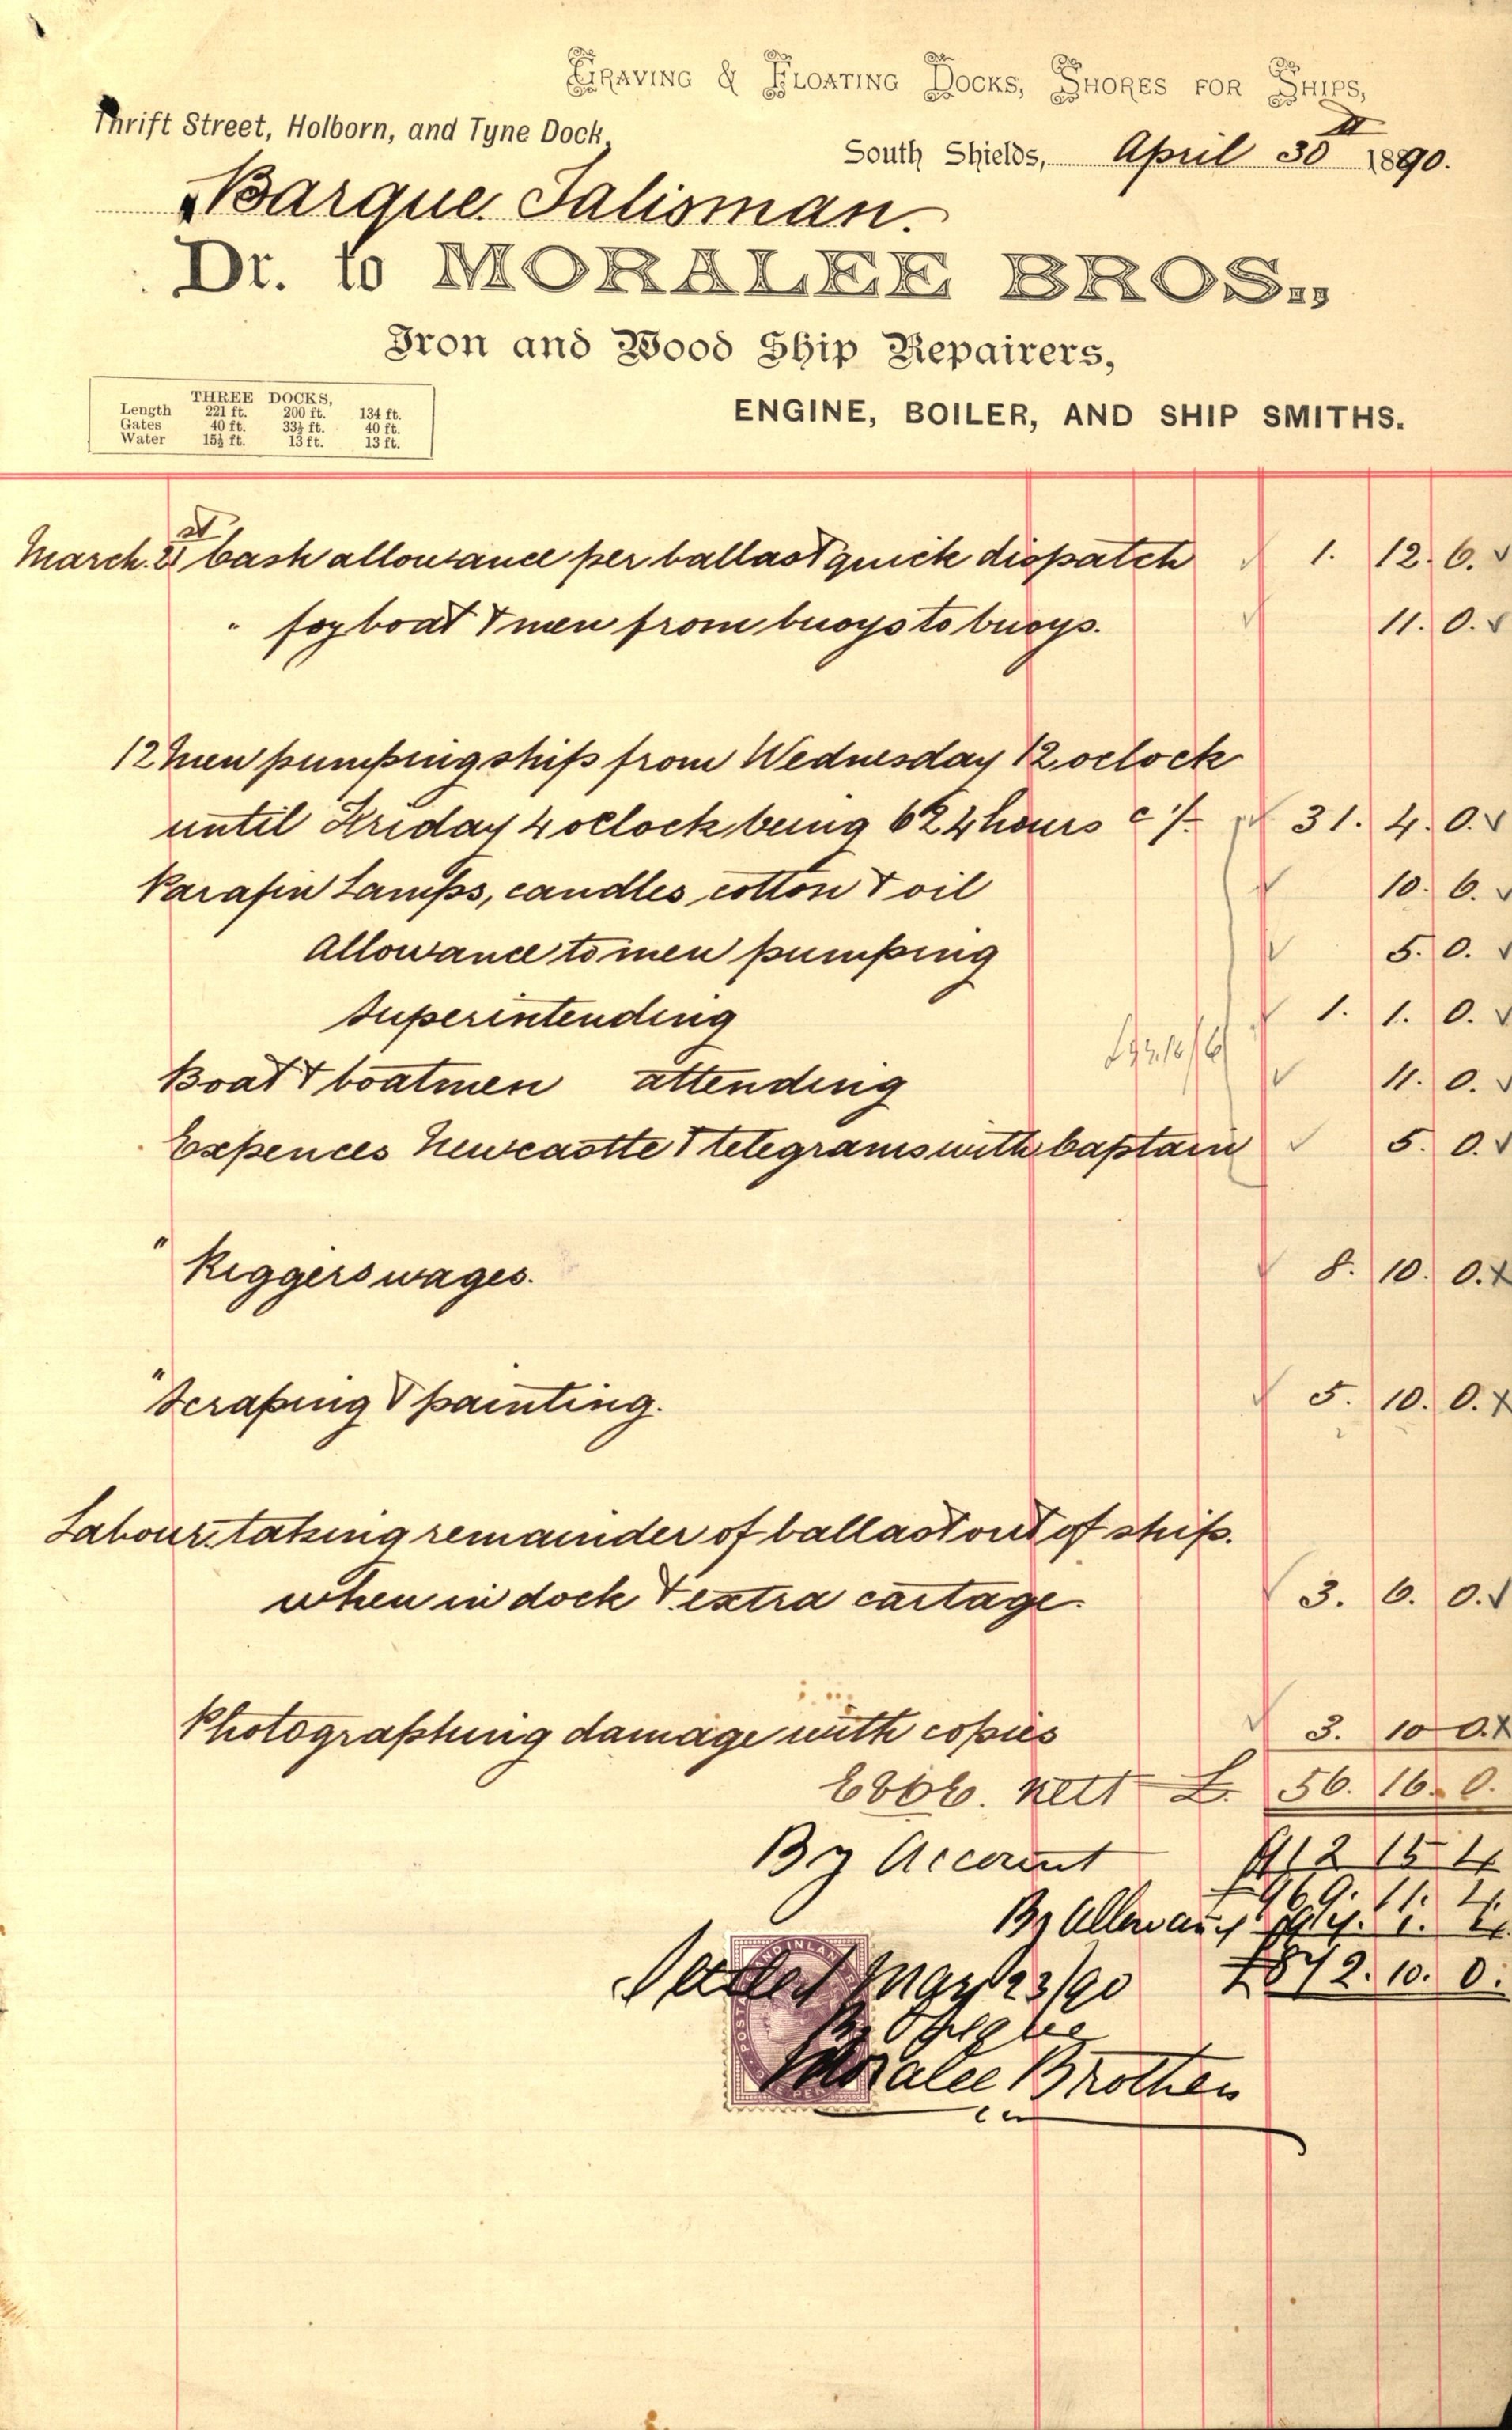 Graving & Floating Docks, Shores for Ships,
Thrift Street, Holborn, and Tyne Dock,
South Shields, April 30th 1890.
Barque Talisman.
Dr. to MORALEE BROS.,
Iron and Wood Ship Repairers,
THREE DOCKS,
Length 221 ft. 200 ft. 134 ft.
Gates 40 ft. 33½ ft. 40 ft.
Water 15½ ft. 13 ft. 13 ft.
ENGINE, BOILER, AND SHIP SMITHS.
March 21st Cash allowance per ballast quick dispatch 1. 12. 6.
" foyboat & men from buoys to buoys. 11. 0.
12 Men pumping ship from Wednesday 12 oclock
until Friday 4 oclock being 624 hours @ 1/- 31. 4. 0.
Parafin Lamps, candles, cotton & oil 10. 6.
Allowance to men pumping 5. 0.
Superintending 1. 1. 0.
Boat & boatmen attending 11. 0.
Expences Newcastle & telegrams with Captain 5. 0.
" Riggers wages. 8. 10. 0.
" Scraping & painting. 5. 10. 0.
Labour taking remainder of ballast out of ship.
when in dock & extra cartage. 3. 6. 0.
Photographing damage with copies 3. 10 0.
E&OE. Nett £. 56. 16. 0.
By Account 912 15 4
£969. 11. 4.
By Allowance
£872. 10. 0.
Settled May 23/90
By Cheque
Moralee Brothers